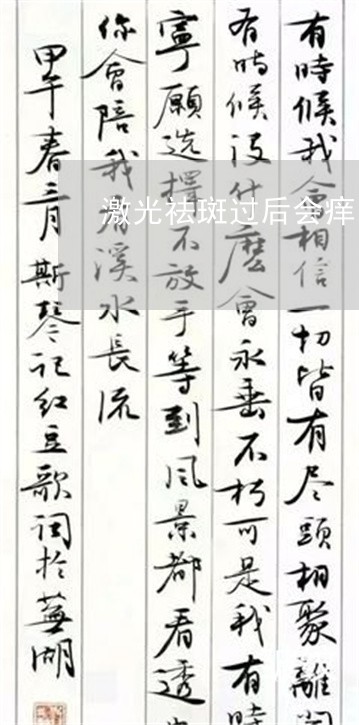 有時候我会相信一切皆有尽頭相聚離開
有時候没什麼會永垂不朽可是我有時
寧願选擇不放手等到风景都看透
你會陪我看溪水長流
甲午春三月斯琴记红豆歌词於蕪湖
激光祛斑过后会痒